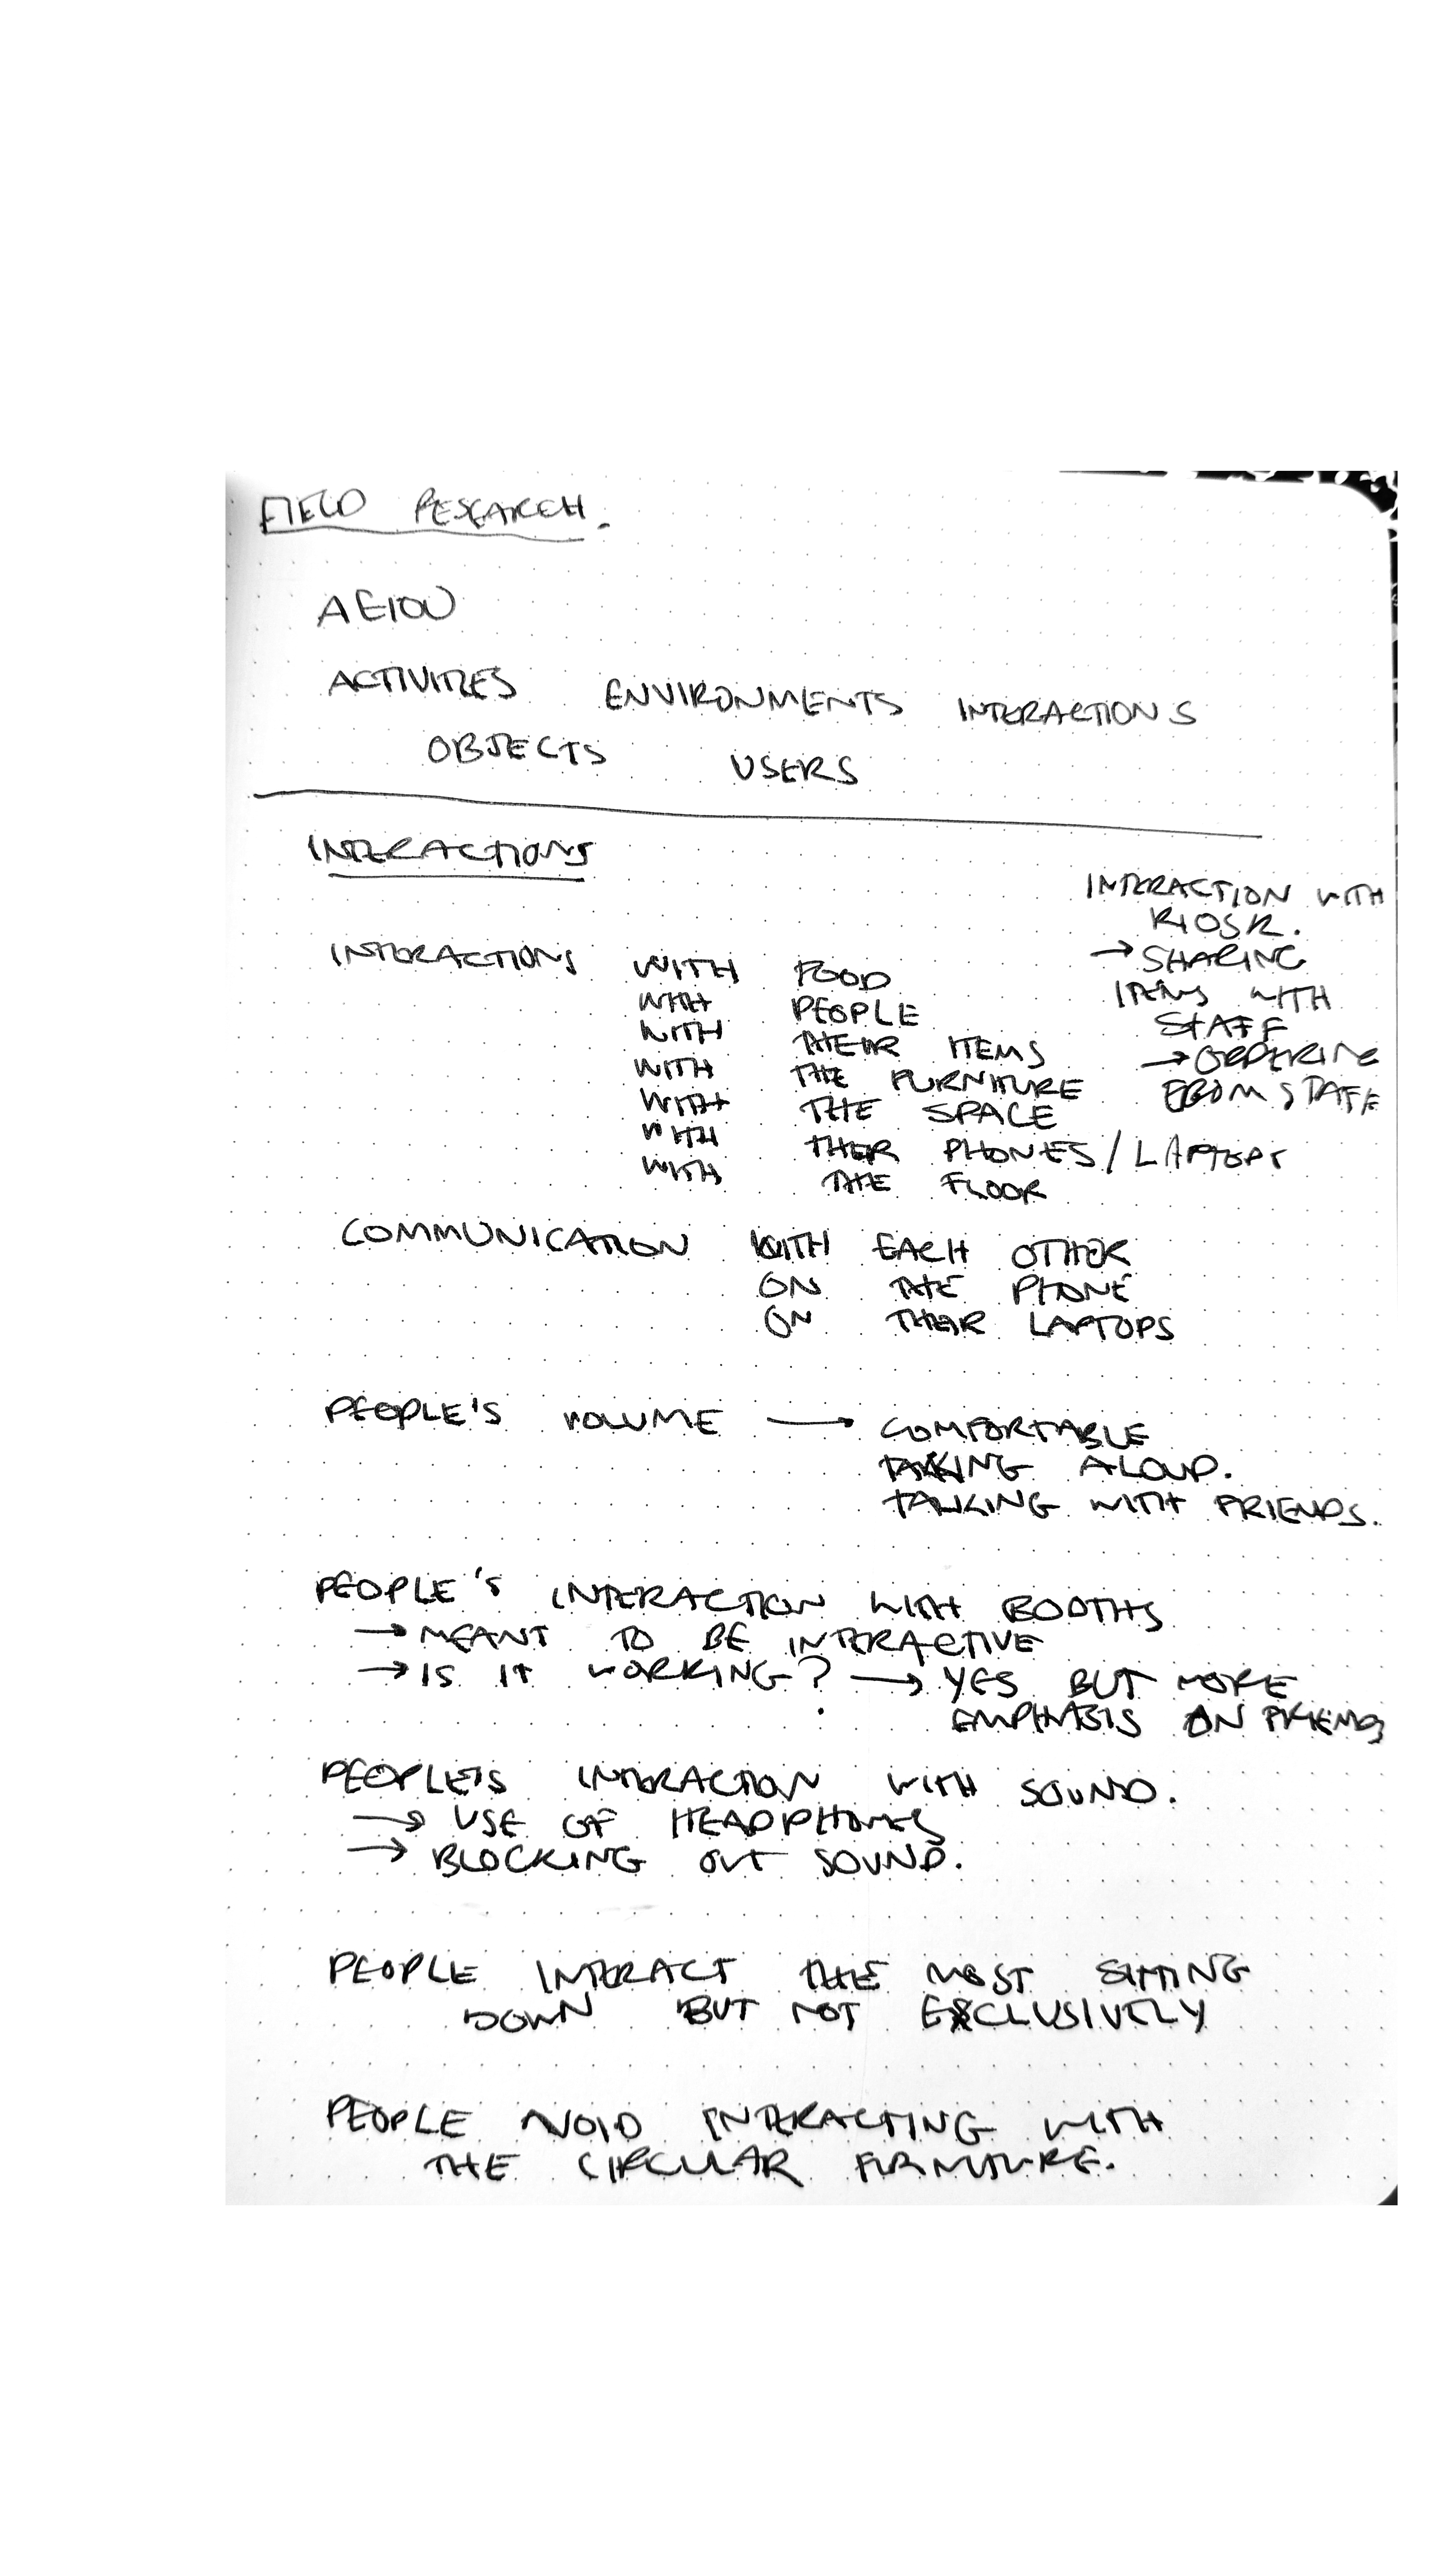 FIELD RESEARCH.
AEIOU
ACTIVITIES ENVIRONMENTS INTERACTIONS
OBJECTS USERS
INTERACTIONS
INTERACTIONS WITH FOOD
WITH PEOPLE
WITH THEIR ITEMS
WITH THE FURNITURE
WITH THE SPACE
WITH THEIR PHONES/LAPTOPS
WITH THE FLOOR
INTERACTION WITH
KIOSK.
→ SHARING
ITEMS WITH
STAFF
→ ORDERING
FROM STAFF
COMMUNICATION WITH EACH OTHER
ON THE PHONE
ON THEIR LAPTOPS
PEOPLE'S VOLUME → COMFORTABLE
TALKING ALOUD.
TALKING WITH FRIENDS.
PEOPLE'S INTERACTION WITH BOOTHS
→ MEANT TO BE INTERACTIVE
→ IS IT WORKING? → YES BUT MORE
EMPHASIS ON FRIENDS
PEOPLE'S INTERACTION WITH SOUND.
→ USE OF HEADPHONES
→ BLOCKING OUT SOUND.
PEOPLE INTERACT THE MOST SITTING
DOWN BUT NOT EXCLUSIVELY
PEOPLE AVOID INTERACTING WITH
THE CIRCULAR FURNITURE.